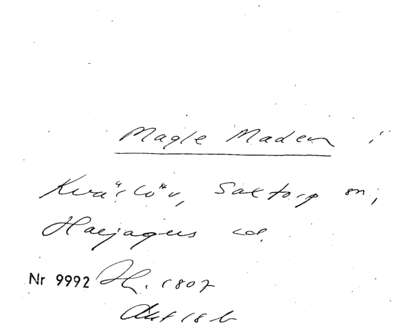 Magle Maden i
Kvärlöv, Saxtorp sn,
Harjagers hd.
Nr 9992 H. 1807
Akt 18 b